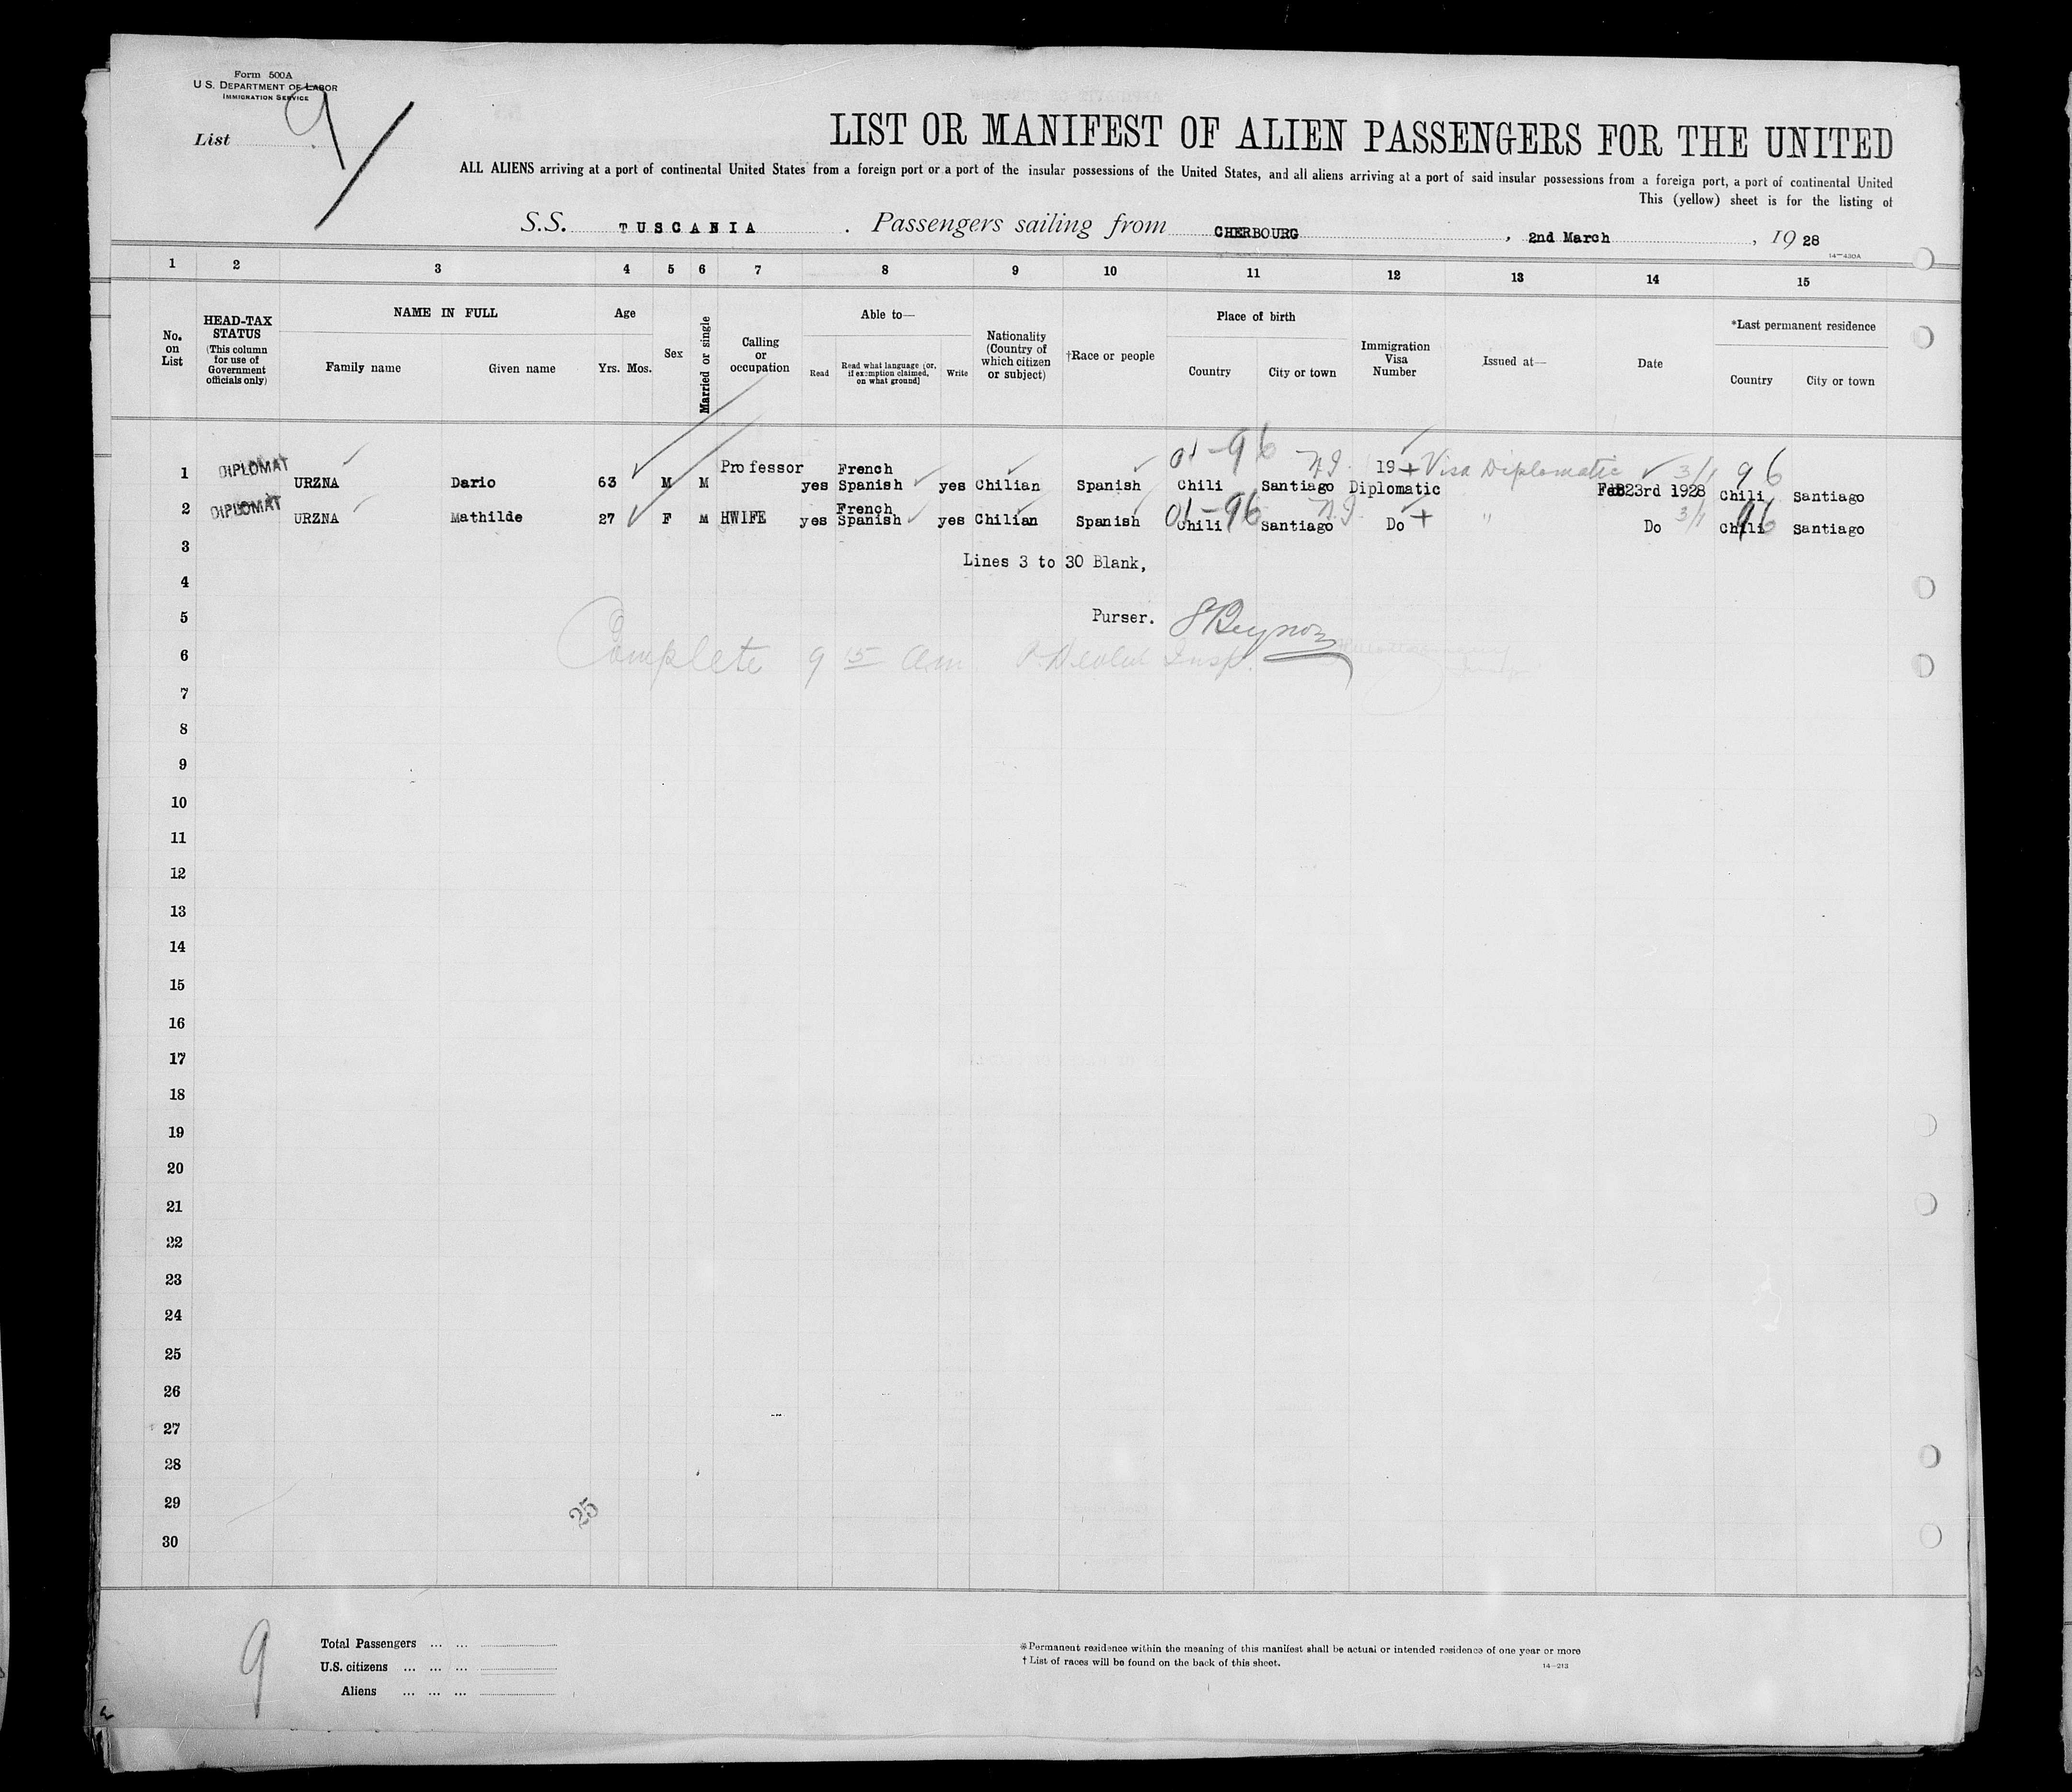 Form 500A
U. S. DEPARTMENT OF LABOR
IMMIGRATION SERVICE
List 9
LIST OR MANIFEST OF ALIEN PASSENGERS FOR THE UNITED
ALL ALIENS arriving at a port of continental United States from a foreign port or a port of the insular possessions of the United States, and all aliens arriving at a port of said insular possessions from a foreign port, a port of continental United
This (yellow) sheet is for the listing of
S.S. TUSCANIA . Passengers sailing from CHERBOURG , 2nd March , 19 28
14—430A
1 2 3 4 5 6 7 8 9 10 11 12 13 14 15
No. on List
HEAD-TAX STATUS (This column for use of Government officials only)
NAME IN FULL
Family name Given name
Age
Yrs. Mos.
Sex
Married or single
Calling or occupation
Able to—
Read
Read what language [or, if exemption claimed, on what ground]
Write
Nationality (Country of which citizen or subject)
†Race or people
Place of birth
Country City or town
Immigration Visa Number
Issued at—
Date
*Last permanent residence
Country City or town
1 DIPLOMAT URZNA Dario 63 M M Professor yes French Spanish yes Chilian Spanish 01-96 Chili Santiago 19 Diplomatic Visa Diplomatic Feb 23rd 1928 3/1 96 Chili Santiago
2 DIPLOMAT URZNA Mathilde 27 F M HWIFE yes French Spanish yes Chilian Spanish 01-96 Chili Santiago Do " Do 3/1 96 Chili Santiago
3
Lines 3 to 30 Blank,
4
5
Purser.
6
Complete 9 15 am Insp.
7
8
9
10
11
12
13
14
15
16
17
18
19
20
21
22
23
24
25
26
27
28
29
25
30
9
Total Passengers ... ...
U.S. citizens ... ... ...
Aliens ... ... ...
*Permanent residence within the meaning of this manifest shall be actual or intended residence of one year or more
† List of races will be found on the back of this sheet.
14—213